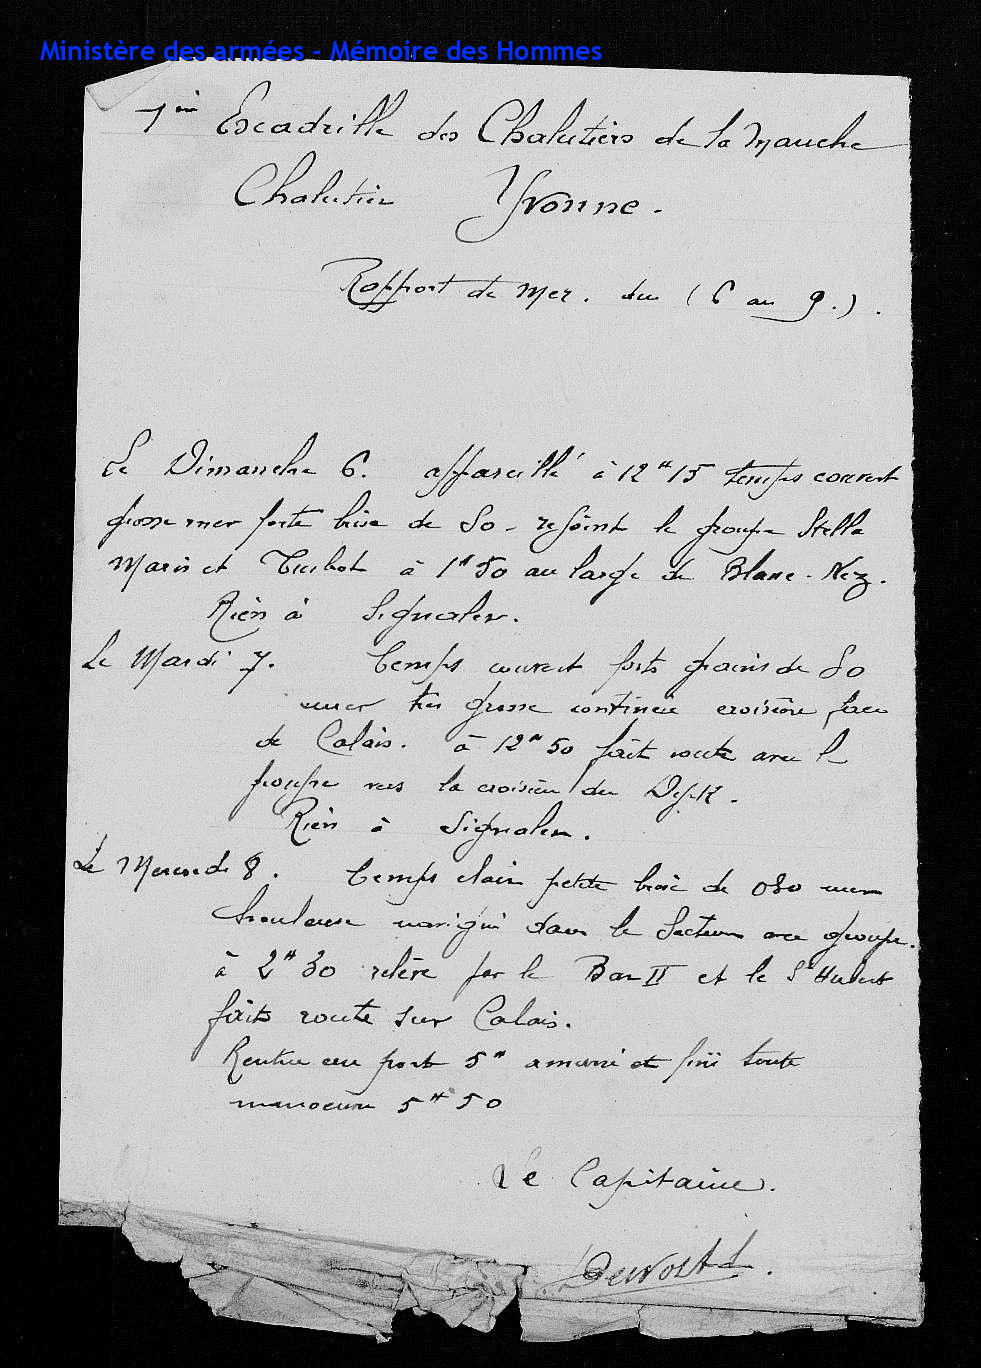 Ministère des armées - Mémoire des Hommes
1ère Escadrille des Chalutiers de la Manche
Chalutier Yvonne.
Rapport de Mer. du (6 au 9.).
Le Dimanche 6. appareillé à 12H15 temps couvert
grosse mer forte brise de So - rejoint le groupe Stella
Maris et Turbot à 1H50 au large de Blanc-Nez.
Rien à Signaler.
Le Mardi 7. Temps couvert forts grains de So
mer très grosse continué croisière face
de Calais. à 12H50 fait route avec le
groupe vers la croisière du Dyck.
Rien à Signaler.
Le Mercredi 8. Temps clair petite brise de OSO mer
houleuse navigué dans le Secteur avec groupe.
à 2H30 relevé par le Bar II et le St Hubert
faits route sur Calais.
Rentrée au port 5H amarré et fini toute
manoeuvre 5H50
Le Capitaine.